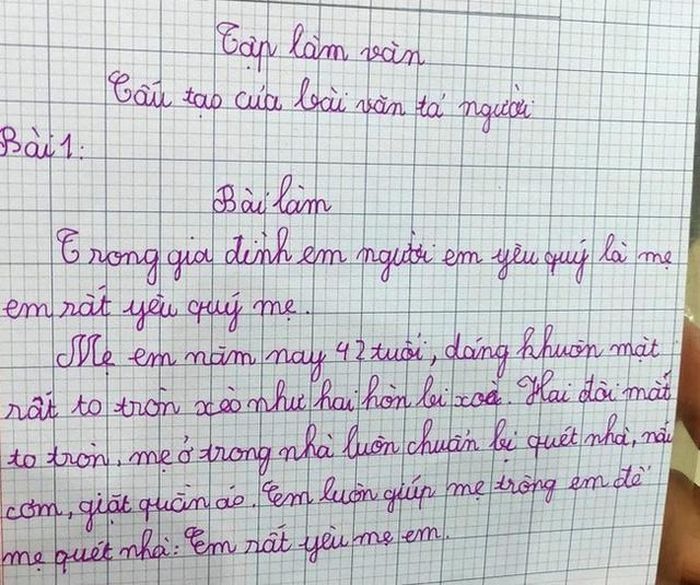 Tập làm văn
Cấu tạo của bài văn tả người
Bài 1:
Bài làm
Trong gia đình em người em yêu quý là mẹ
em rất yêu quý mẹ.
Mẹ em năm nay 42 tuổi, dáng khuôn mặt
rất to tròn xéo như hai hòn bi xoả. Hai đôi mắt
to tròn, mẹ ở trong nhà luôn chuẩn bị quét nhà, nấu
cơm, giặt quần áo. Em luôn giúp mẹ trông em để
mẹ quét nhà: Em rất yêu mẹ em.